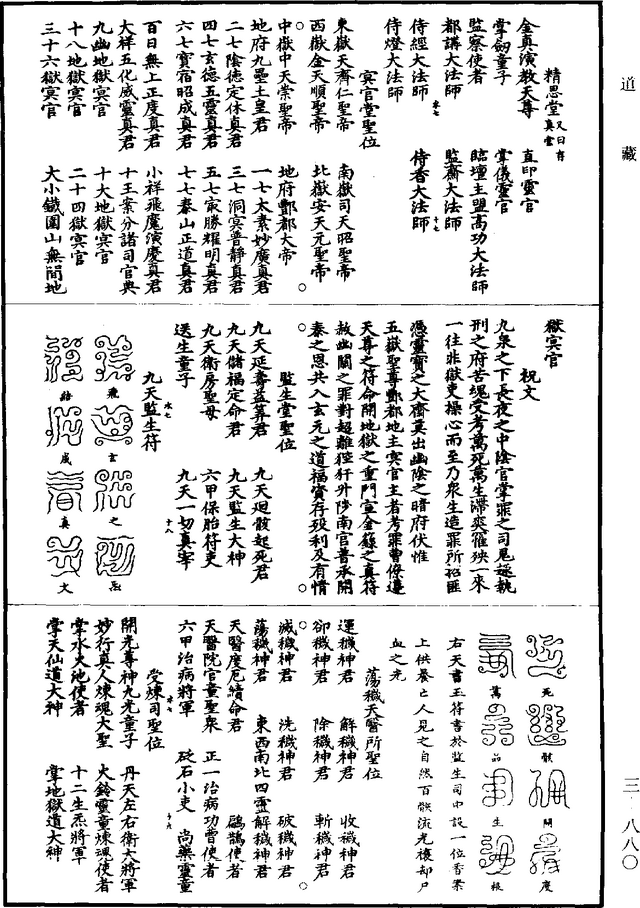 道藏
三·八八〇
精思堂又曰存真堂
金真演教天尊　直印靈官
掌劒童子　掌儀靈官
監察使者　臨壇主盟高功大法師
都講大法師　監齋大法師
侍經大法師　侍香大法師
侍燈大法師
冥官堂聖位
東嶽天齊仁聖帝　南嶽司天昭聖帝
西嶽金天順聖帝　北嶽安天元聖帝
中嶽中天崇聖帝　地府酆都大帝
地府九壘土皇君　一七太素妙廣真君
二七陰德定休真君　三七洞冥普靜真君
四七玄德五靈真君　五七最勝耀明真君
六七寶宿昭成真君　七七泰山正道真君
百日無上正度真君　小祥飛魔演慶真君
大祥五化威靈真君　十王案分諸司官典
九幽地獄冥官　十大地獄冥官
十八地獄冥官　二十四獄冥官
三十六獄冥官　大小鐵圍山無間地
獄冥官
祝文
九泉之下長夜之中陰官掌罪之司鬼趣執
刑之府苦魂受考萬死萬生滯爽罹殃一來
一往非獄吏操心而至乃衆生造罪所招匪
憑靈寶之大齋莫出幽陰之暗府伏惟
五嶽聖尊酆都地主冥官主者考罪曹僚遵
天尊之符命開地獄之重門宣金籙之真符
赦幽關之罪對超離狴犴升陟南宮普承開
泰之恩共入玄元之道福資存歿利及有情
監生堂聖位
九天延壽益算君　九天迴骸起死君
九天儲福定命君　九天監生大神
九天衛房聖母　六甲保胎符吏
送生童子　九天一切真宰
九天監生符
飛　玄　之　炁
結　成　真　文
死　骸　開　度
萬　品　生　根
右天書玉符書於監生司中設一位香菓
上供養亡人見之自然百骸流光穢却尸
血之光
蕩穢天醫所聖位
運穢神君　解穢神君　收穢神君
卻穢神君　除穢神君　斬穢神君
滅穢神君　洗穢神君　破穢神君
蕩穢神君　東西南北四靈解穢神君
天醫度厄續命君　鶣鵲使者
天醫院官童聖衆　正一治病功曹使者
六甲治病將軍　砭石小吏　尚藥靈童
受煉司聖位
開光尊神九光童子　丹天左右衛大將軍
妙行真人煉魂大聖　大鈴靈童煉魂使者
掌水火地使者　十二生炁將軍
掌天仙道大神　掌地獄道大神